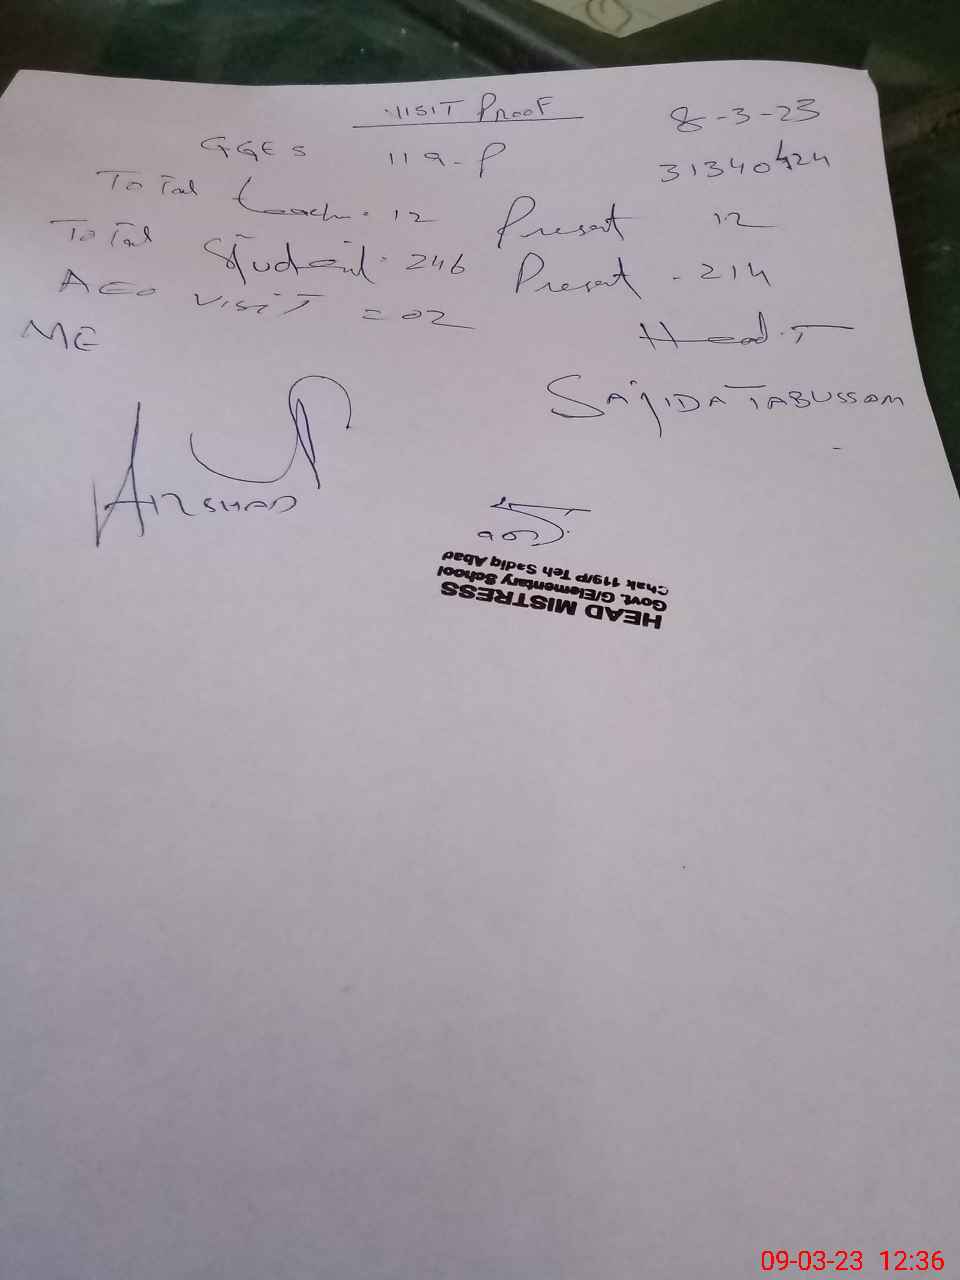 VISIT PROOF
8-3-23
GGES 119-P
31340424
Total teach. 12 Present 12
Total Student. 246 Present - 214
AEO VISIT = 02
ME
Head.T
SAJIDA TABUSSOM
ARSHAD
HEAD MISTRESS
Govt. G/Elementary School
Chak 119/P Teh Sadiq Abad
09-03-23 12:36